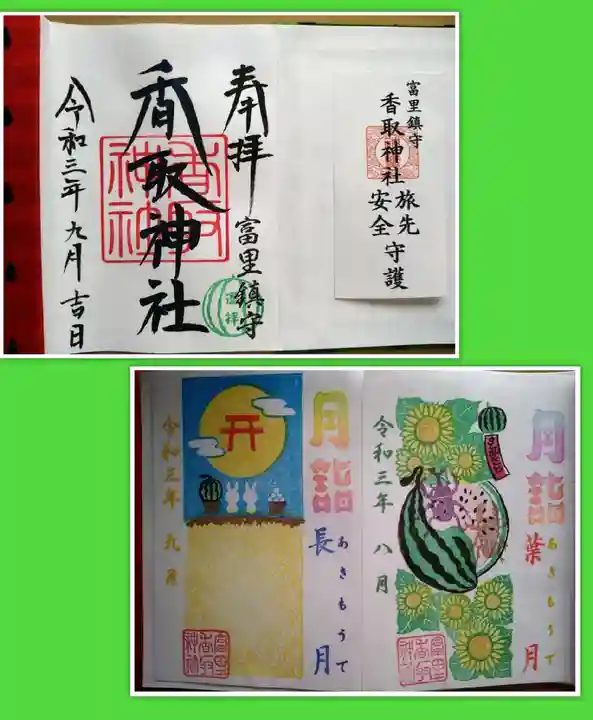 奉拝
富里鎮守
香取神社
令和三年九月吉日
香取神社
遥拝
富里鎮守
香取神社旅先
安全守護
月詣
長月
あきもうで
令和三年九月
富里
香取
神社
月詣
葉月
あきもうで
令和三年八月
富里
香取
神社